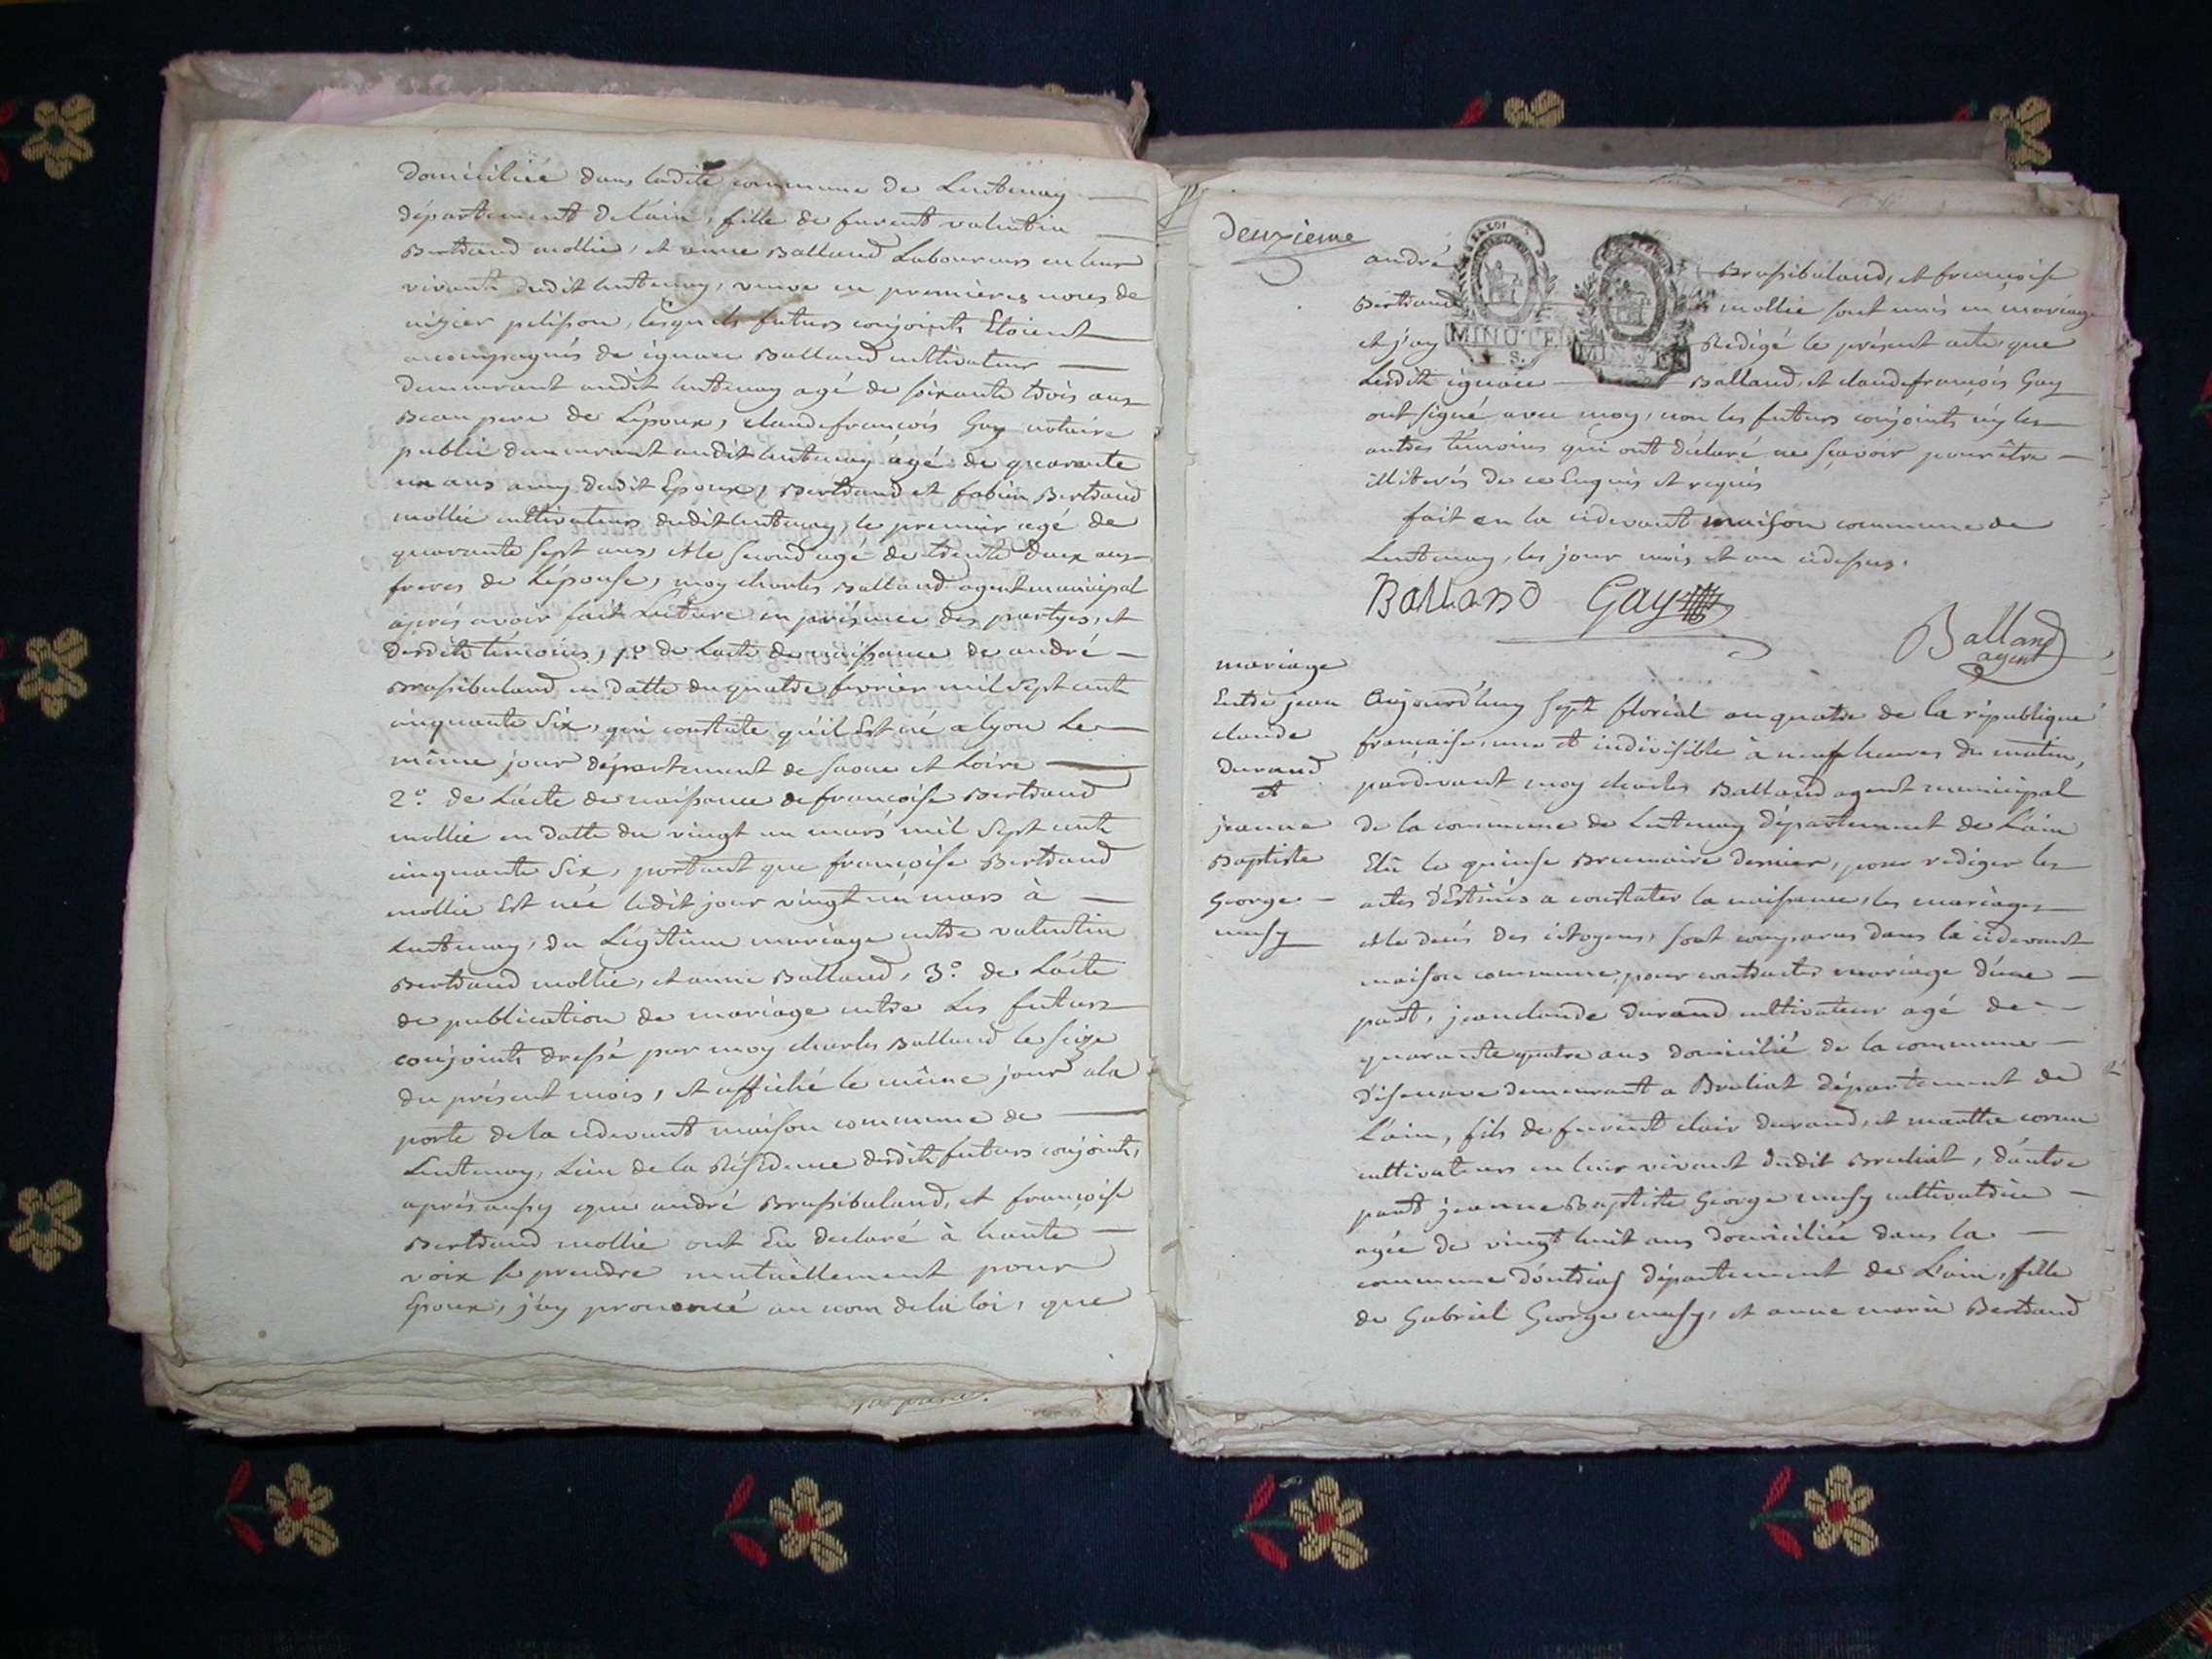 domiciliée dans ladite commune de Lentenay
département de l'ain, fille de furent valentin
Bertrand mollie, et anne Balland Laboureurs en leur
vivant dudit lentenay, veuve en premières noces de
nizier pelisson, lesquels futurs conjoints Etoient
accompagnés de ignace Balland cultivateur
demeurant audit lentenay agé de soixante trois ans
Beau pere de L'époux, claude françois Gay notaire
public demeurant audit lentenay agé de quarante
un ans amy dudit Epoux, Bertrand et fabien Bertrand
mollie cultivateurs dudit lentenay, le premier agé de
quarante sept ans, et le second agé de trente deux ans
freres de L'épouse, moy charles Balland agent municipal
après avoir fait Lecture en présence des partyes, et
desdits témoins, 1º de Lacte de naissance de andré
Brassibuland en datte du quatre fevrier mil sept cent
cinquante six, qui constate qu'il Est né a lyon Le
même jour département de saone et Loire
2º de L'acte de naissance de françoise Bertrand
mollie en datte du vingt un mars mil sept cent
cinquante six, portant que françoise Bertrand
mollie Est née ledit jour vingt un mars à
Lentenay, du Légitime mariage entre valentin
Bertrand mollie, et anne Balland, 3º de L'acte
de publication de mariage entre Les futurs
conjoints dressé par moy charles Balland le seize
du présent mois, et affiché le même jour a la
porte de la cidevant maison commune de
Lentenay, Lieu de la Résidence desdits futurs conjoints,
après aussy que andré Brassibuland, et françoise
Bertrand mollie ont Eu declaré à haute
voix se prendre mutuellement pour
Epoux, j'ay prononcé au nom de la loi, que
deuxieme
andré Brassibuland, et françoise
Bertrand mollie sont unis en mariage
et j'ay Rédigé le présent acte, que
Lesdits ignace Balland, et claude françois Gay
ont signé avec moy, non les futurs conjoints ny les
autres témoins qui ont déclaré ne sçavoir pour être
illiterés de ce Enquis et requis
fait en la cidevant maison commune de
Lentenay, les jour mois et an cidessus.
MINUTE MINUTE
Balland Gay
Balland
agent
mariage
Entre jean
claude
durand
et
jeanne
Baptiste
George
musy
Aujourd'huy sept floréal an quatre de la république
française, une et indivisible à neuf heures du matin,
pardevant moy charles Balland agent municipal
de la commune de Lentenay département de L'ain
Elû le quinse Brumaire dernier, pour rediger les
actes déstinés a constater la naissance, les mariages
et le decés des citoyens, sont comparus dans la cidevant
maison commune, pour contracter mariage d'une
part, jean claude durand cultivateur agé de
quarante quatre ans domicilié de la commune
d'isenave demeurant a Brenat département de
L'ain, fils de furent clair durand, et marthe
cultivateurs en leur vivant dudit Brenat, d'autre
part jeanne Baptiste George musy cultivatrice
agée de vingt huit ans domiciliée dans la
commune d'outriaz département de L'ain, fille
de Gabriel George musy, et anne marie Bertrand